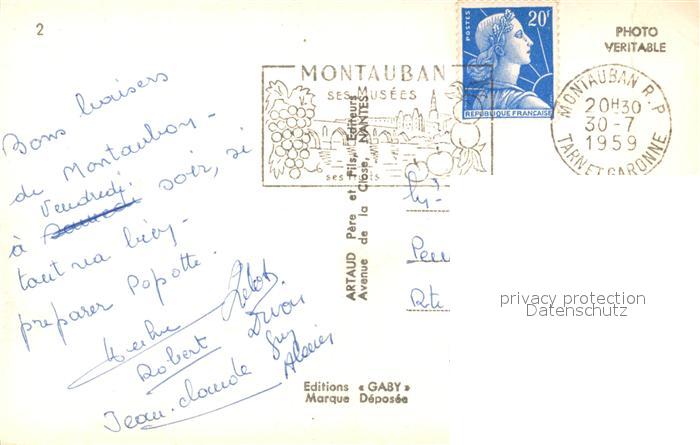 2
Bons baisers
de Montauban -
Vendredi
à samedi soir, si
tout va bien -
préparer Popotte.
Robert
Jean-Claude Guy
MONTAUBAN
SES MUSÉES
POSTES
20F
REPUBLIQUE FRANÇAISE
MONTAUBAN R.P.
20H30
30-7
1959
TARN ET GARONNE
PHOTO
VERITABLE
ARTAUD Père et Fils, Editeurs
Avenue de la Close, NANTES
Rte
privacy protection
Datenschutz
Editions « GABY »
Marque Déposée